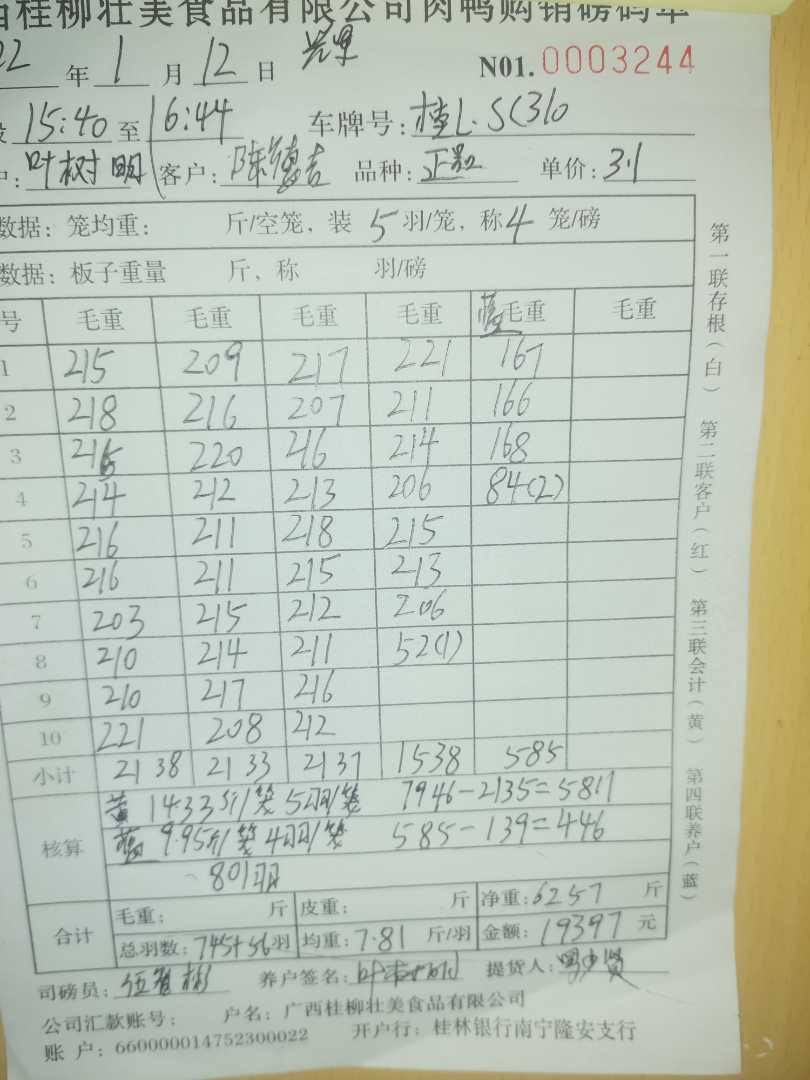 桂柳壮美食品有限公司肉鸭购销磅码单
22 年 1 月 12 日
N01. 0003244
15:40 至 16:44 车牌号:
叶树明 客户: 陈德吉 品种: 单价: 3.1
数据: 笼均重: 斤/空笼, 装 5 羽/笼, 称 4 笼/磅
数据: 板子重量 斤, 称 羽/磅
号 毛重 毛重 毛重 毛重 蓝毛重 毛重
1 215 209 217 221 167
2 218 216 207 211 166
3 215 220 216 214 168
4 214 212 213 206 84(2)
5 216 211 218 215
6 216 211 215 213
7 203 215 212 206
8 210 214 211 52(1)
9 210 217 216
10 221 208 212
小计 2138 2133 2137 1538 585
核算 黄 14.33斤/笼 5羽/笼 7946-2135=5811
蓝 9.95斤/笼 4羽/笼 585-139=446
801羽
合计 毛重: 斤 皮重: 斤 净重: 6257 斤
总羽数: 745+56 羽 均重: 7.81 斤/羽 金额: 19397 元
司磅员: 养户签名: 提货人:
公司汇款账号: 户名: 广西桂柳壮美食品有限公司
账 户: 660000014752300022 开户行: 桂林银行南宁隆安支行
第一联存根(白) 第二联客户(红) 第三联会计(黄) 第四联养户(蓝)